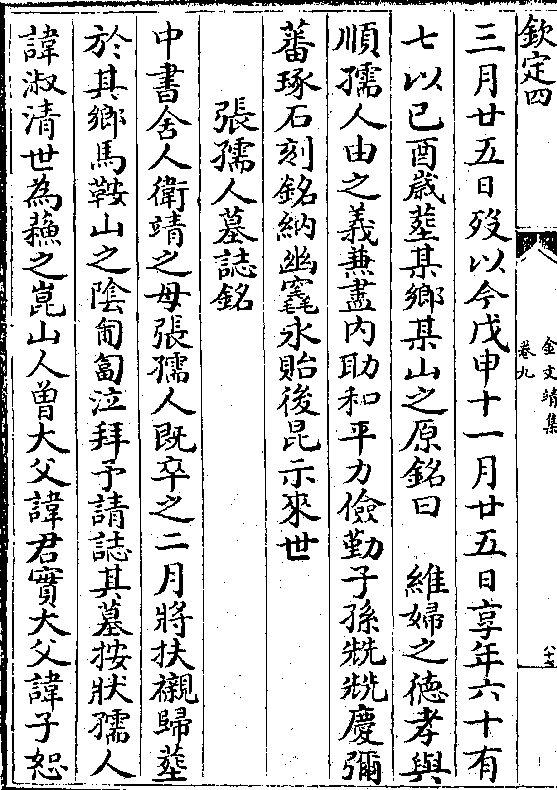 欽定四
金文靖集
卷九
三月廿五日歿以今戊申十一月廿五日享年六十有
七以已酉歲塟某鄉某山之原銘曰　維婦之德孝與
順孺人由之義兼盡内助和平力儉勤子孫兟兟慶彌
蕃琢石刻銘納幽窀永貽後昆示來世
張孺人墓誌銘
中書舍人衛靖之母張孺人既卒之二月將扶櫬歸塟
於其鄉馬鞍山之陰匍匐泣拜予請誌其墓按狀孺人
諱淑清世為蘓之崑山人曽大父諱君實大父諱子恕